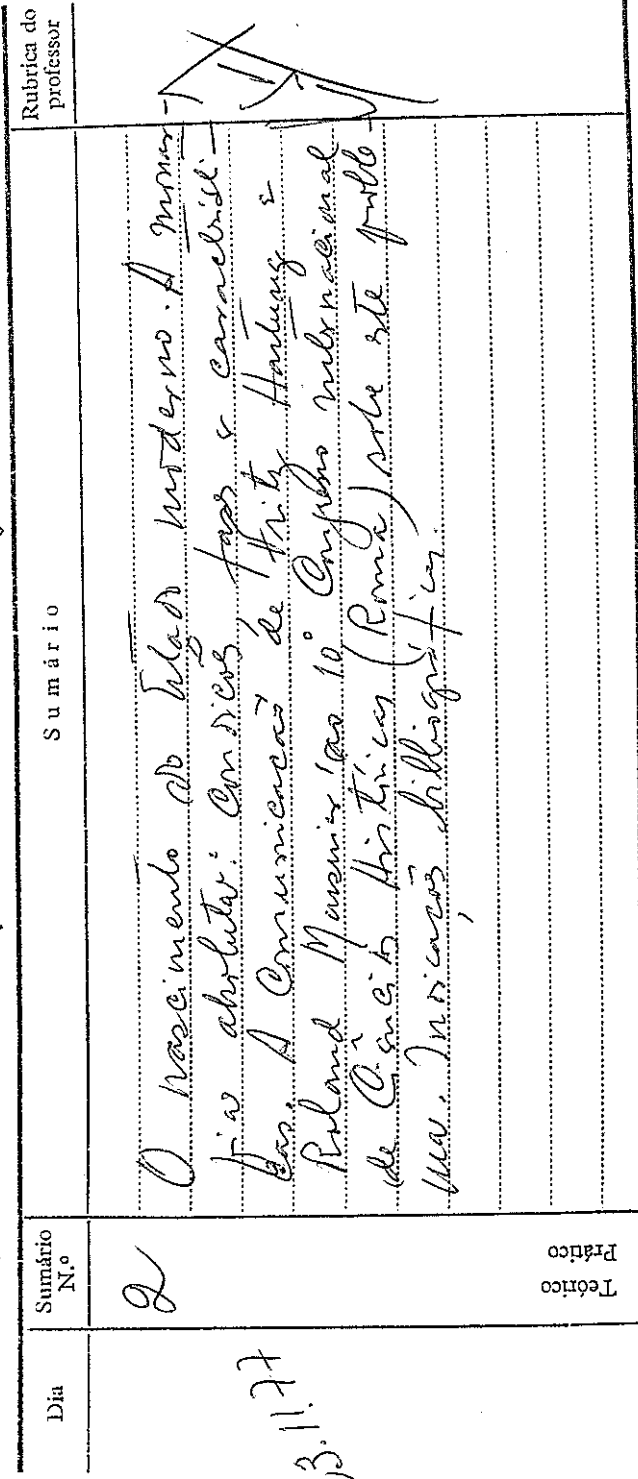 Dia
Sumário N.º
Sumário
Rubrica do professor
3.11.77
2
Teórico
Prático
O nascimento do Estado moderno. A monar-
quia absoluta: condições, fases e característi-
cas. A Comunicação de Fritz Hartung e
Roland Mousnier ao 10º Congresso internacional
de Ciências Históricas (Roma) sobre este proble-
ma. Indicações bibliográficas.